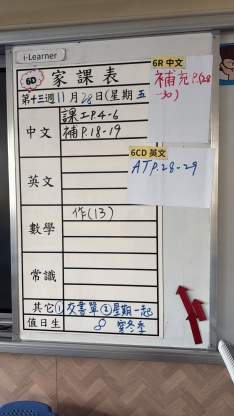 i-Learner
6D 家課表
第十三週 11月28日(星期五
中文 課工P.4-6
補P.18-19
英文
數學 作(13)
常識
其它 ①交書單 ②星期一起
值日生 8 穿冬季
6R 中文
補充P.(28
-30)
6CD 英文
ATP.28-29